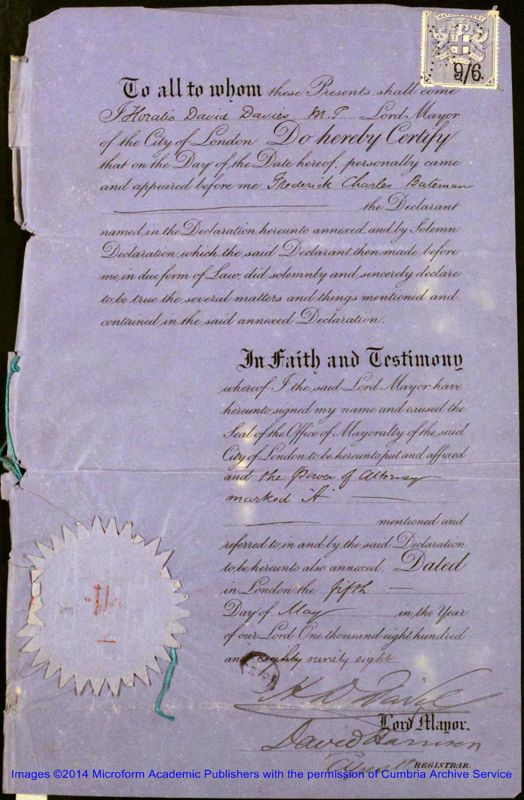 MAYOR COURT
9/6.
To all to whom these Presents shall come
I Horatio David Davies M.P. Lord Mayor
of the City of London Do hereby Certify
that on the Day of the Date hereof, personally came
and appeared before me Frederick Charles Bateman
the Declarant
named in the Declaration hereunto annexed, and by Solemn
Declaration, which the said Declarant then made before
me, in due form of Law, did solemnly and sincerely declare
to be true the several matters and things mentioned and
contained in the said annexed Declaration.
In Faith and Testimony
whereof I the said Lord Mayor have
hereunto signed my name and caused the
Seal of the Office of Mayoralty of the said
City of London to be hereunto put and affixed
and the Power of Attorney
marked "A"
mentioned and
referred to in and by the said Declaration
to be hereunto also annexed. Dated
in London the fifth
Day of May in the Year
of our Lord One thousand eight hundred
and eighty ninety eight
H D Davies
Lord Mayor.
David Harrison
REGISTRAR.
Images ©2014 Microform Academic Publishers with the permission of Cumbria Archive Service